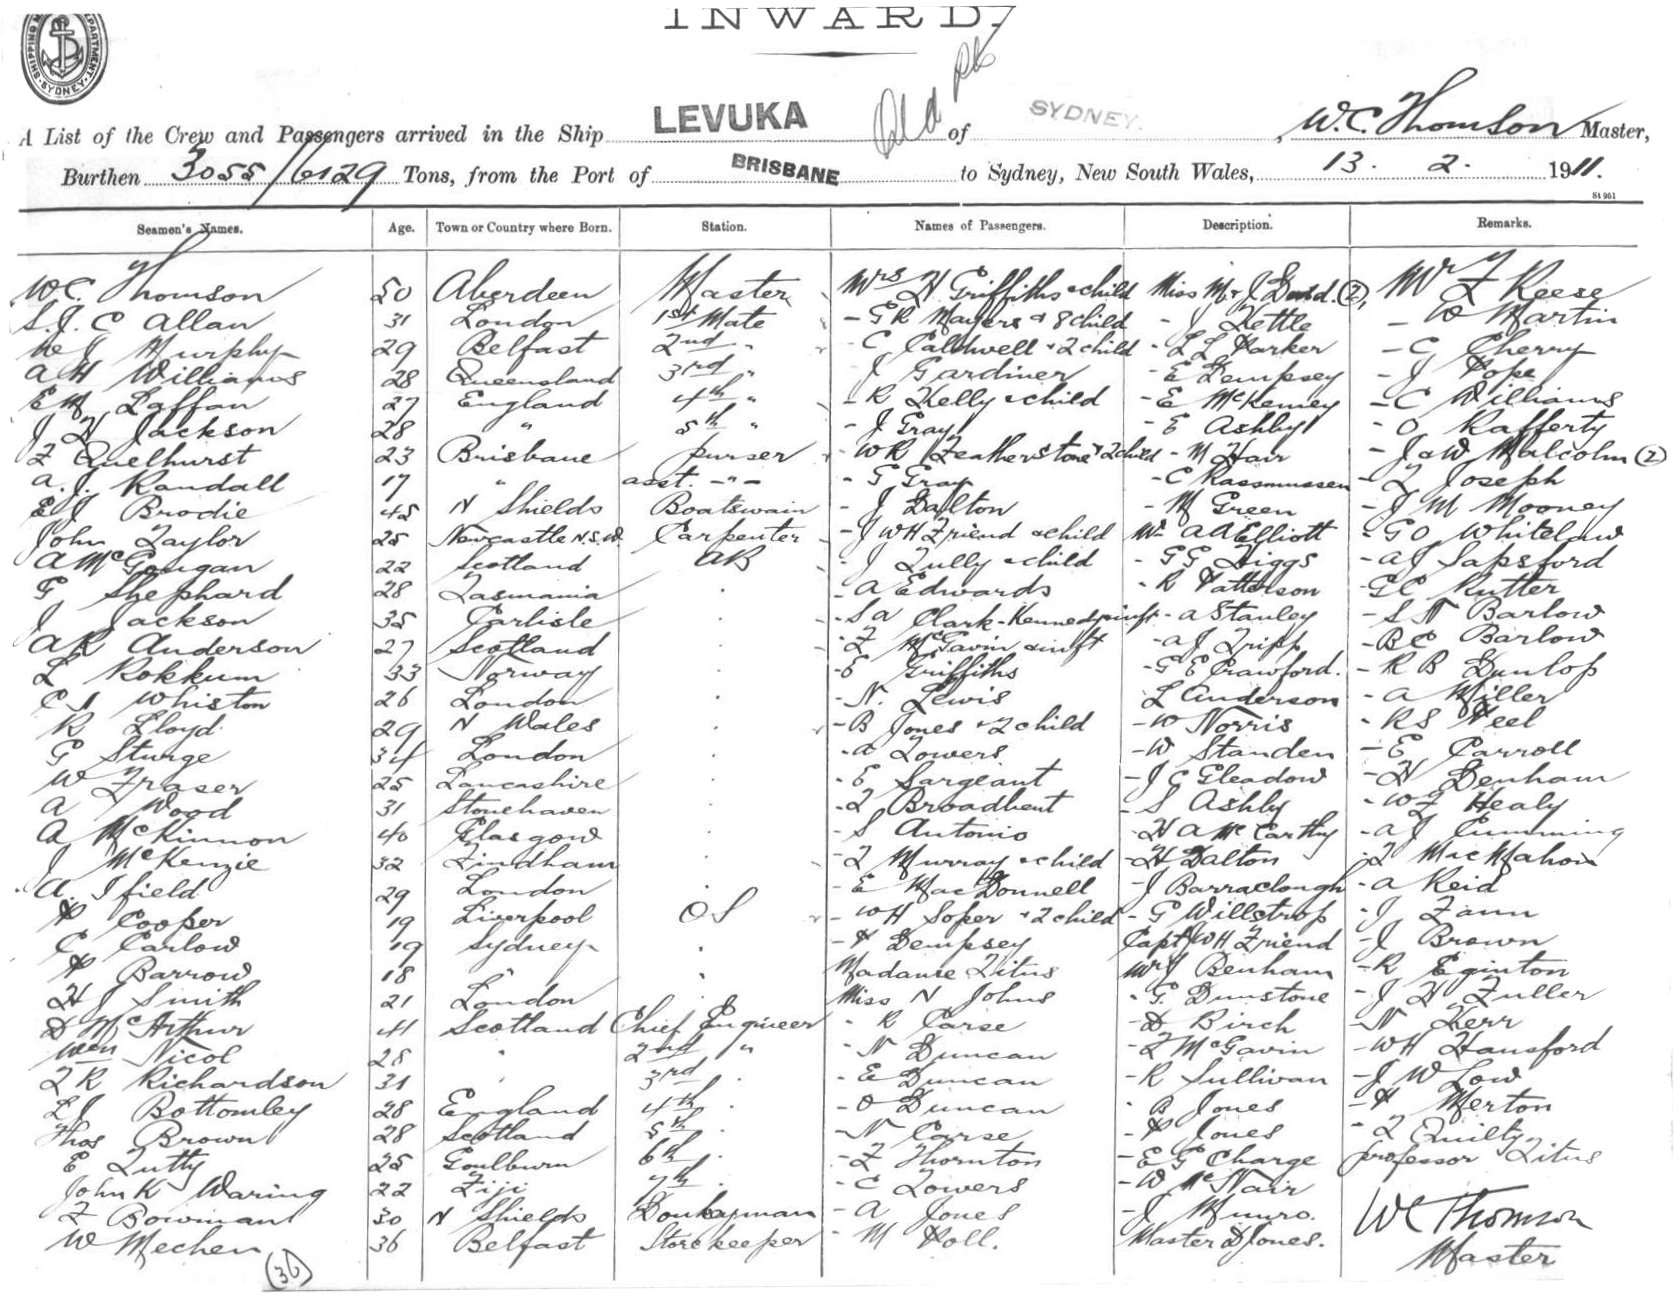 INWARD.
SHIPPING DEPARTMENT. SYDNEY.
Qld
A List of the Crew and Passengers arrived in the Ship LEVUKA of SYDNEY. , W.C. Thomson Master,
Burthen 3055/6129 Tons, from the Port of BRISBANE to Sydney, New South Wales, 13. 2. 1911.
St 961
Seamen's Names. Age. Town or Country where Born. Station. Names of Passengers. Description. Remarks.
W.C. Thomson 50 Aberdeen Master Mrs H Griffiths & child Miss M & J (2), Mr F Reese
S.J. C Allan 31 London 1st Mate - G R Mayers & 8 child - J Kettle - W Martin
W J Murphy 29 Belfast 2nd " - C Caldwell & 2 child - L L Parker - C Cherry
A H Williams 28 Queensland 3rd " J Gardiner - E Dempsey - J Pope
E M Laffan 27 England 4th " - R Kelly & child - E McKemey - C Williams
J H Jackson 28 " 5th " - J Gray - E Ashby - O Rafferty
F Quelhurst 23 Brisbane purser - W R Featherstone & 2 child - M Hair - J & W Malcolm (2)
A. J. Randall 17 " asst. - " - - G Gray - C Rassmussen - F Joseph
E J Brodie 45 N Shields Boatswain - J Dalton - M Green - J M Mooney
John Taylor 25 Newcastle N.S.W. Carpenter - J W H Friend & child Mr A A Elliott - G O Whitelaw
A McGougan 22 Scotland AB - J Tully & child - G G Higgs - A J Sapsford
G Shephard 28 Tasmania . - A Edwards - R Patterson - G C Rutter
J Jackson 35 Carlisle . - S A Clark-Kennedy & inft - A Stanley - S N Barlow
A R Anderson 27 Scotland . - F McGavin & inft - A J Tripp - B C Barlow
L Rokkum 33 Norway . - E Griffiths - G E Crawford. - R B Dunlop
C S Whiston 26 London . - N. Lewis L Anderson - A Miller
R Lloyd 29 N Wales . - B Jones & 2 child - W Norris - R S Neel
G Sturge 34 London . - A Towers - W Standen - E Carroll
W Fraser 25 Lancashire . - E Sargeant - J C Gleadow - H Denham
A Wood 31 Stonehaven . - T Broadbent - S Ashby - W F Healy
A McKinnon 40 Glasgow . - S Antonio - H A McCarthy - A J Cumming
J McKenzie 32 Lindham . - T Murray & child - H Dalton - T MacMahon
A. Ifield 29 London . - E MacDonnell - J Barraclough - A Reid
H Cooper 19 Liverpool OS - W H Soper & 2 child - G Willstrop - J Fann
C Carlow 19 Sydney . - H Dempsey Capt W H Friend - J Brown
H Barrow 18 " . Madame Titus Mr J Benham - R Eginton
H J Smith 21 London . Miss N Johns - G Dunstone - J H Fuller
D McArthur 41 Scotland Chief Engineer - R Carse - D Birch - N Kerr
Wm Nicol 28 " 2nd " - N Duncan - F McGavin - W H Hansford
T R Richardson 31 . 3rd . - E Duncan - R Sullivan - J W Low
L J Bottomley 28 England 4th . - O Duncan - B Jones - H Merton
Thos Brown 28 Scotland 5th . - N Carse - H Jones - T Quilty
E Tutty 25 Goulburn 6th . - F Thornton - E G Charge professor Titus
John K Waring 22 Fiji 7th . - C Towers - W McNair
F Bowman 30 N Shields Donkeyman - A Jones - J Munro. WC Thomson
W Mechen 36 Belfast Storekeeper - M Poll. Master D Jones. Master
(36)